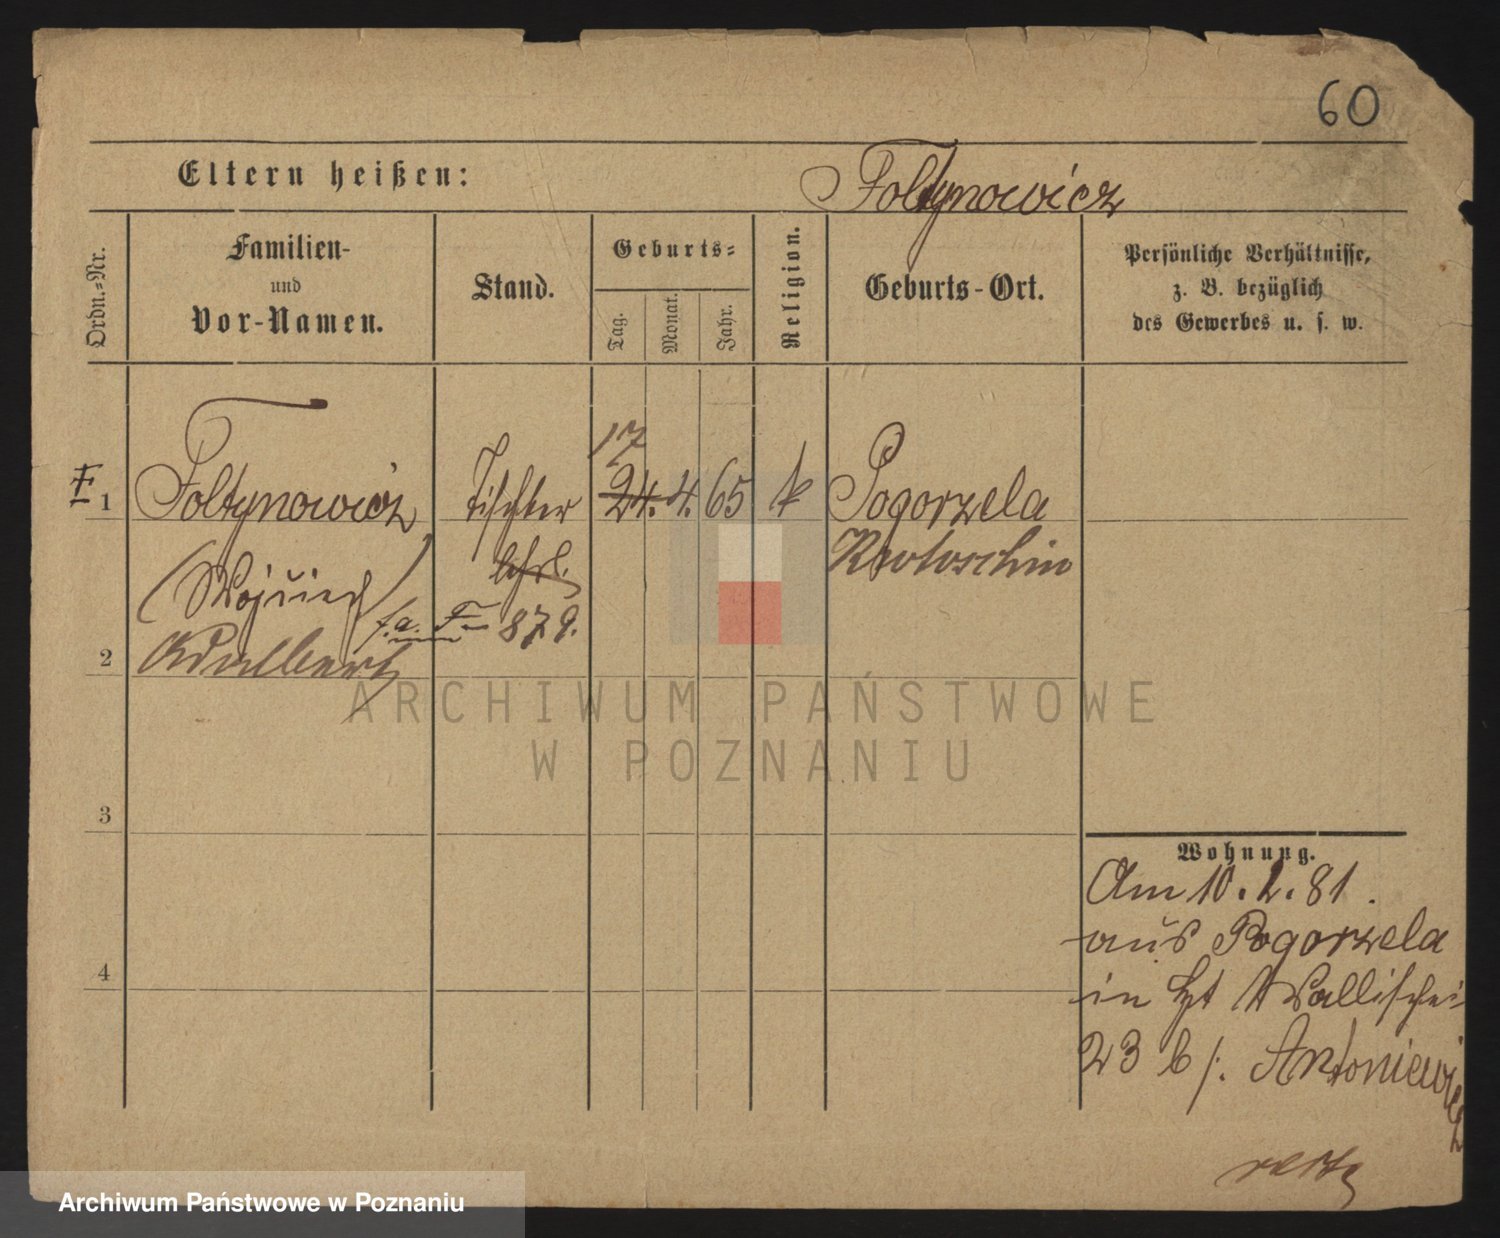 60
Eltern heißen:
Foltynowicz
Ordn.-Nr.
Familien-
und
Vor-Namen.
Stand.
Geburts-
Tag.
Monat.
Jahr.
Religion.
Geburts-Ort.
Persönliche Verhältnisse,
z. B. bezüglich
des Gewerbes u. s. w.
17
F 1 Foltynowicz Tischler 24. 4. 65 k Pogorzela
Krotoschin
(Wojciech)
f. a. F 879.
2 Adalbert
ARCHIWUM PAŃSTWOWE
W POZNANIU
3
Wohnung.
Am 10. 2. 81.
aus Pogorzela
4
in Wallischei
23 b/. Antoniewicz
Archiwum Państwowe w Poznaniu